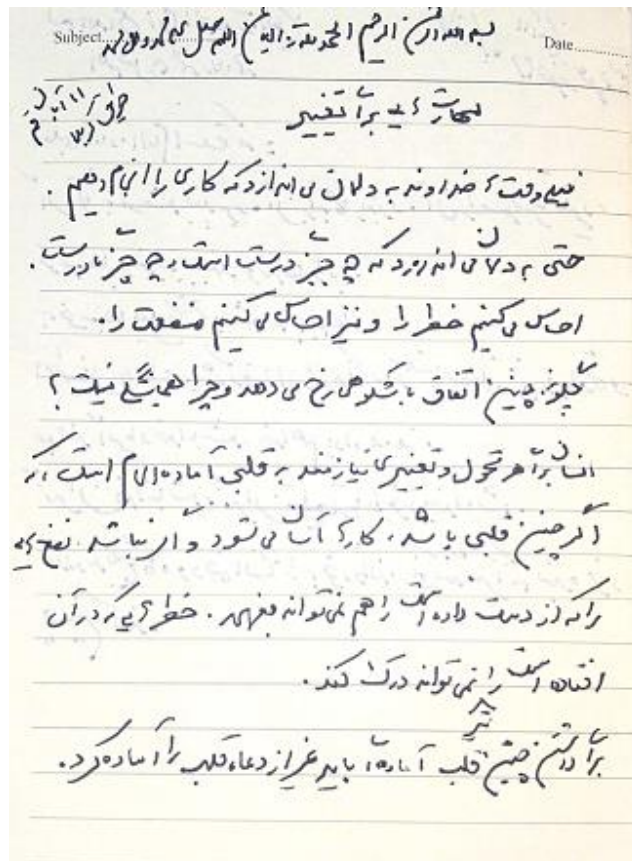 بسم الله الرحمن الرحیم الحمدلله رب العالمین اللهم صل علی محمد و آل محمد
Subject
Date
مهارت‌هایی برای تغییر
۱۱ آبان
خیلی وقت‌ها خداوند به دلمان می‌اندازد که کاری را انجام دهیم.
حتی به دلمان می‌اندازد که چه چیز درست است و چه چیز نادرست.
احساس می‌کنیم خطر را و نیز احساس می‌کنیم منفعت را.
چگونه چنین اتفاق باشکوهی رخ می‌دهد و چرا همیشگی نیست؟
انسان برای هر تحول و تغییری نیازمند به قلبی آماده است که
اگر چنین قلبی باشد، کارها آسان می‌شود و اگر نباشد، نفع‌هایی
را که از دست داده است را هم نمی‌تواند بفهمد. خطرهایی که در آن
افتاده است را نمی‌تواند درک کند.
نیز
برای داشتن چنین قلب آماده‌ای باید غیر از دعا، قلب را آماده کرد.